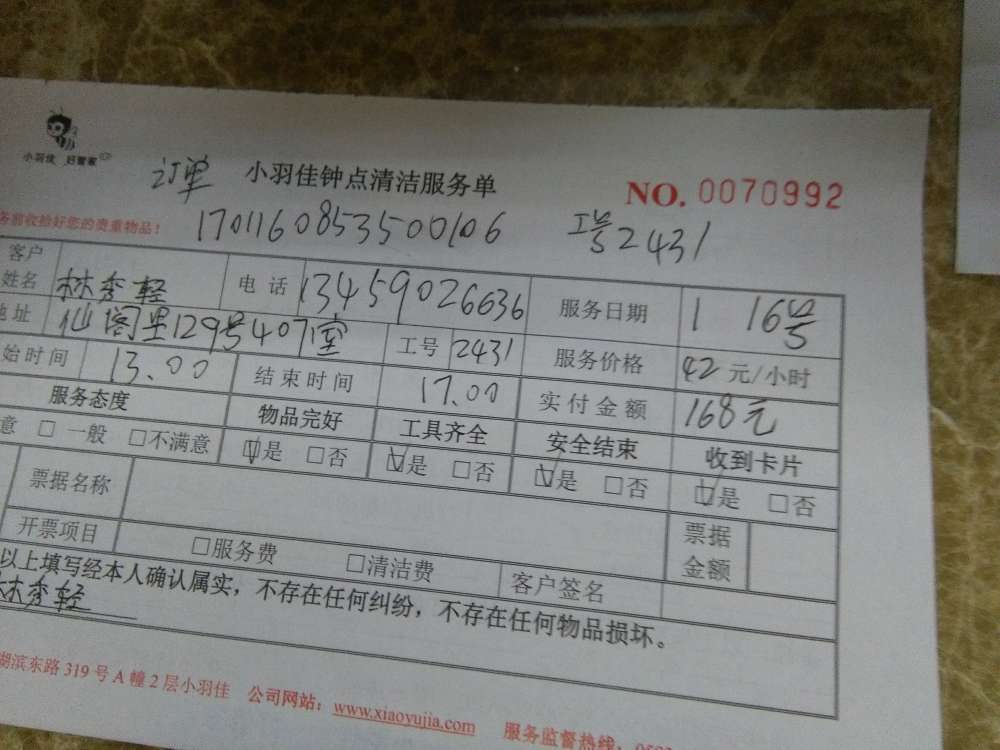 小羽佳 好管家
订单 小羽佳钟点清洁服务单 NO. 0070992
务前收拾好您的贵重物品! 1701160853500106 工号2431
客户姓名 林秀轻 电话 13459026636 服务日期 1 16号
地址 仙阁里129号407室 工号 2431 服务价格 42元/小时
始时间 13.00 结束时间 17.00 实付金额 168元
服务态度 物品完好 工具齐全 安全结束 收到卡片
意 □一般 □不满意 ☑是 □否 ☑是 □否 ☑是 □否 ☑是 □否
票据名称 票据金额
开票项目 □服务费 □清洁费 客户签名
以上填写经本人确认属实，不存在任何纠纷，不存在任何物品损坏。
林秀轻
湖滨东路319号A幢2层小羽佳 公司网站：www.xiaoyujia.com 服务监督热线：